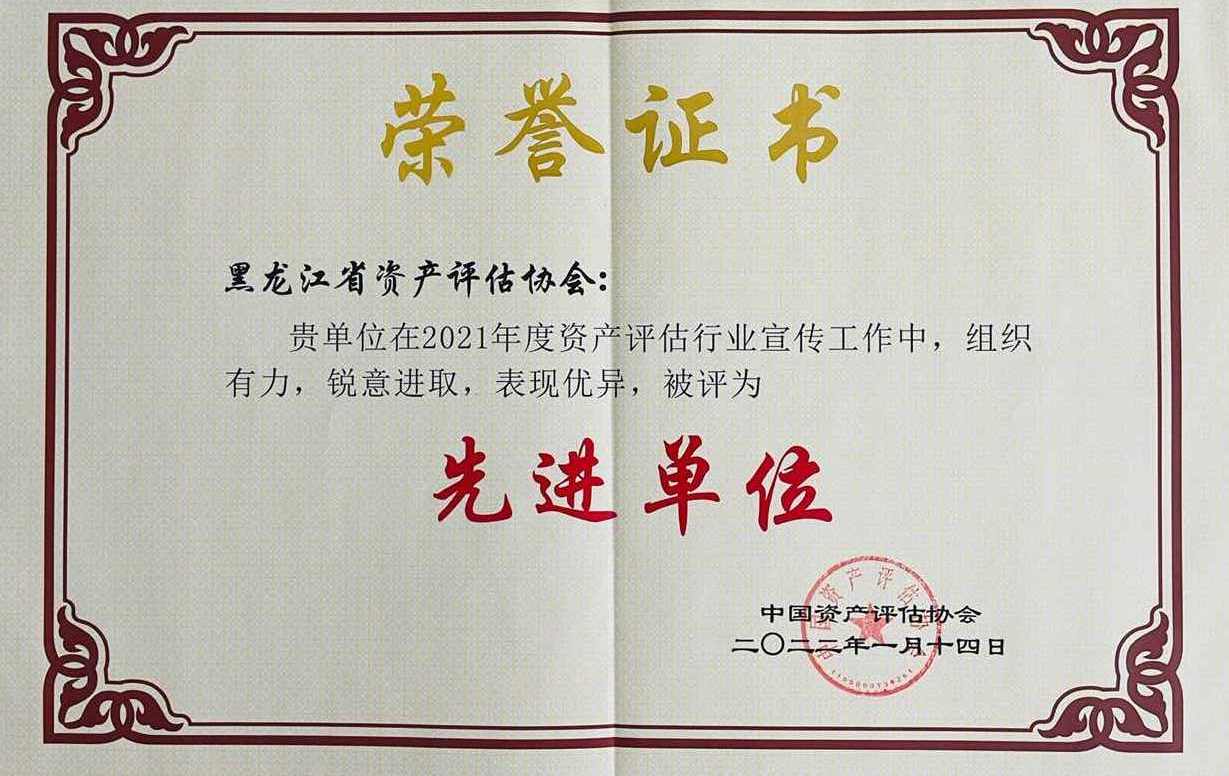 荣誉证书
黑龙江省资产评估协会：
贵单位在2021年度资产评估行业宣传工作中，组织
有力，锐意进取，表现优异，被评为
先进单位
中国资产评估协会
二〇二二年一月十四日
中国资产评估协会